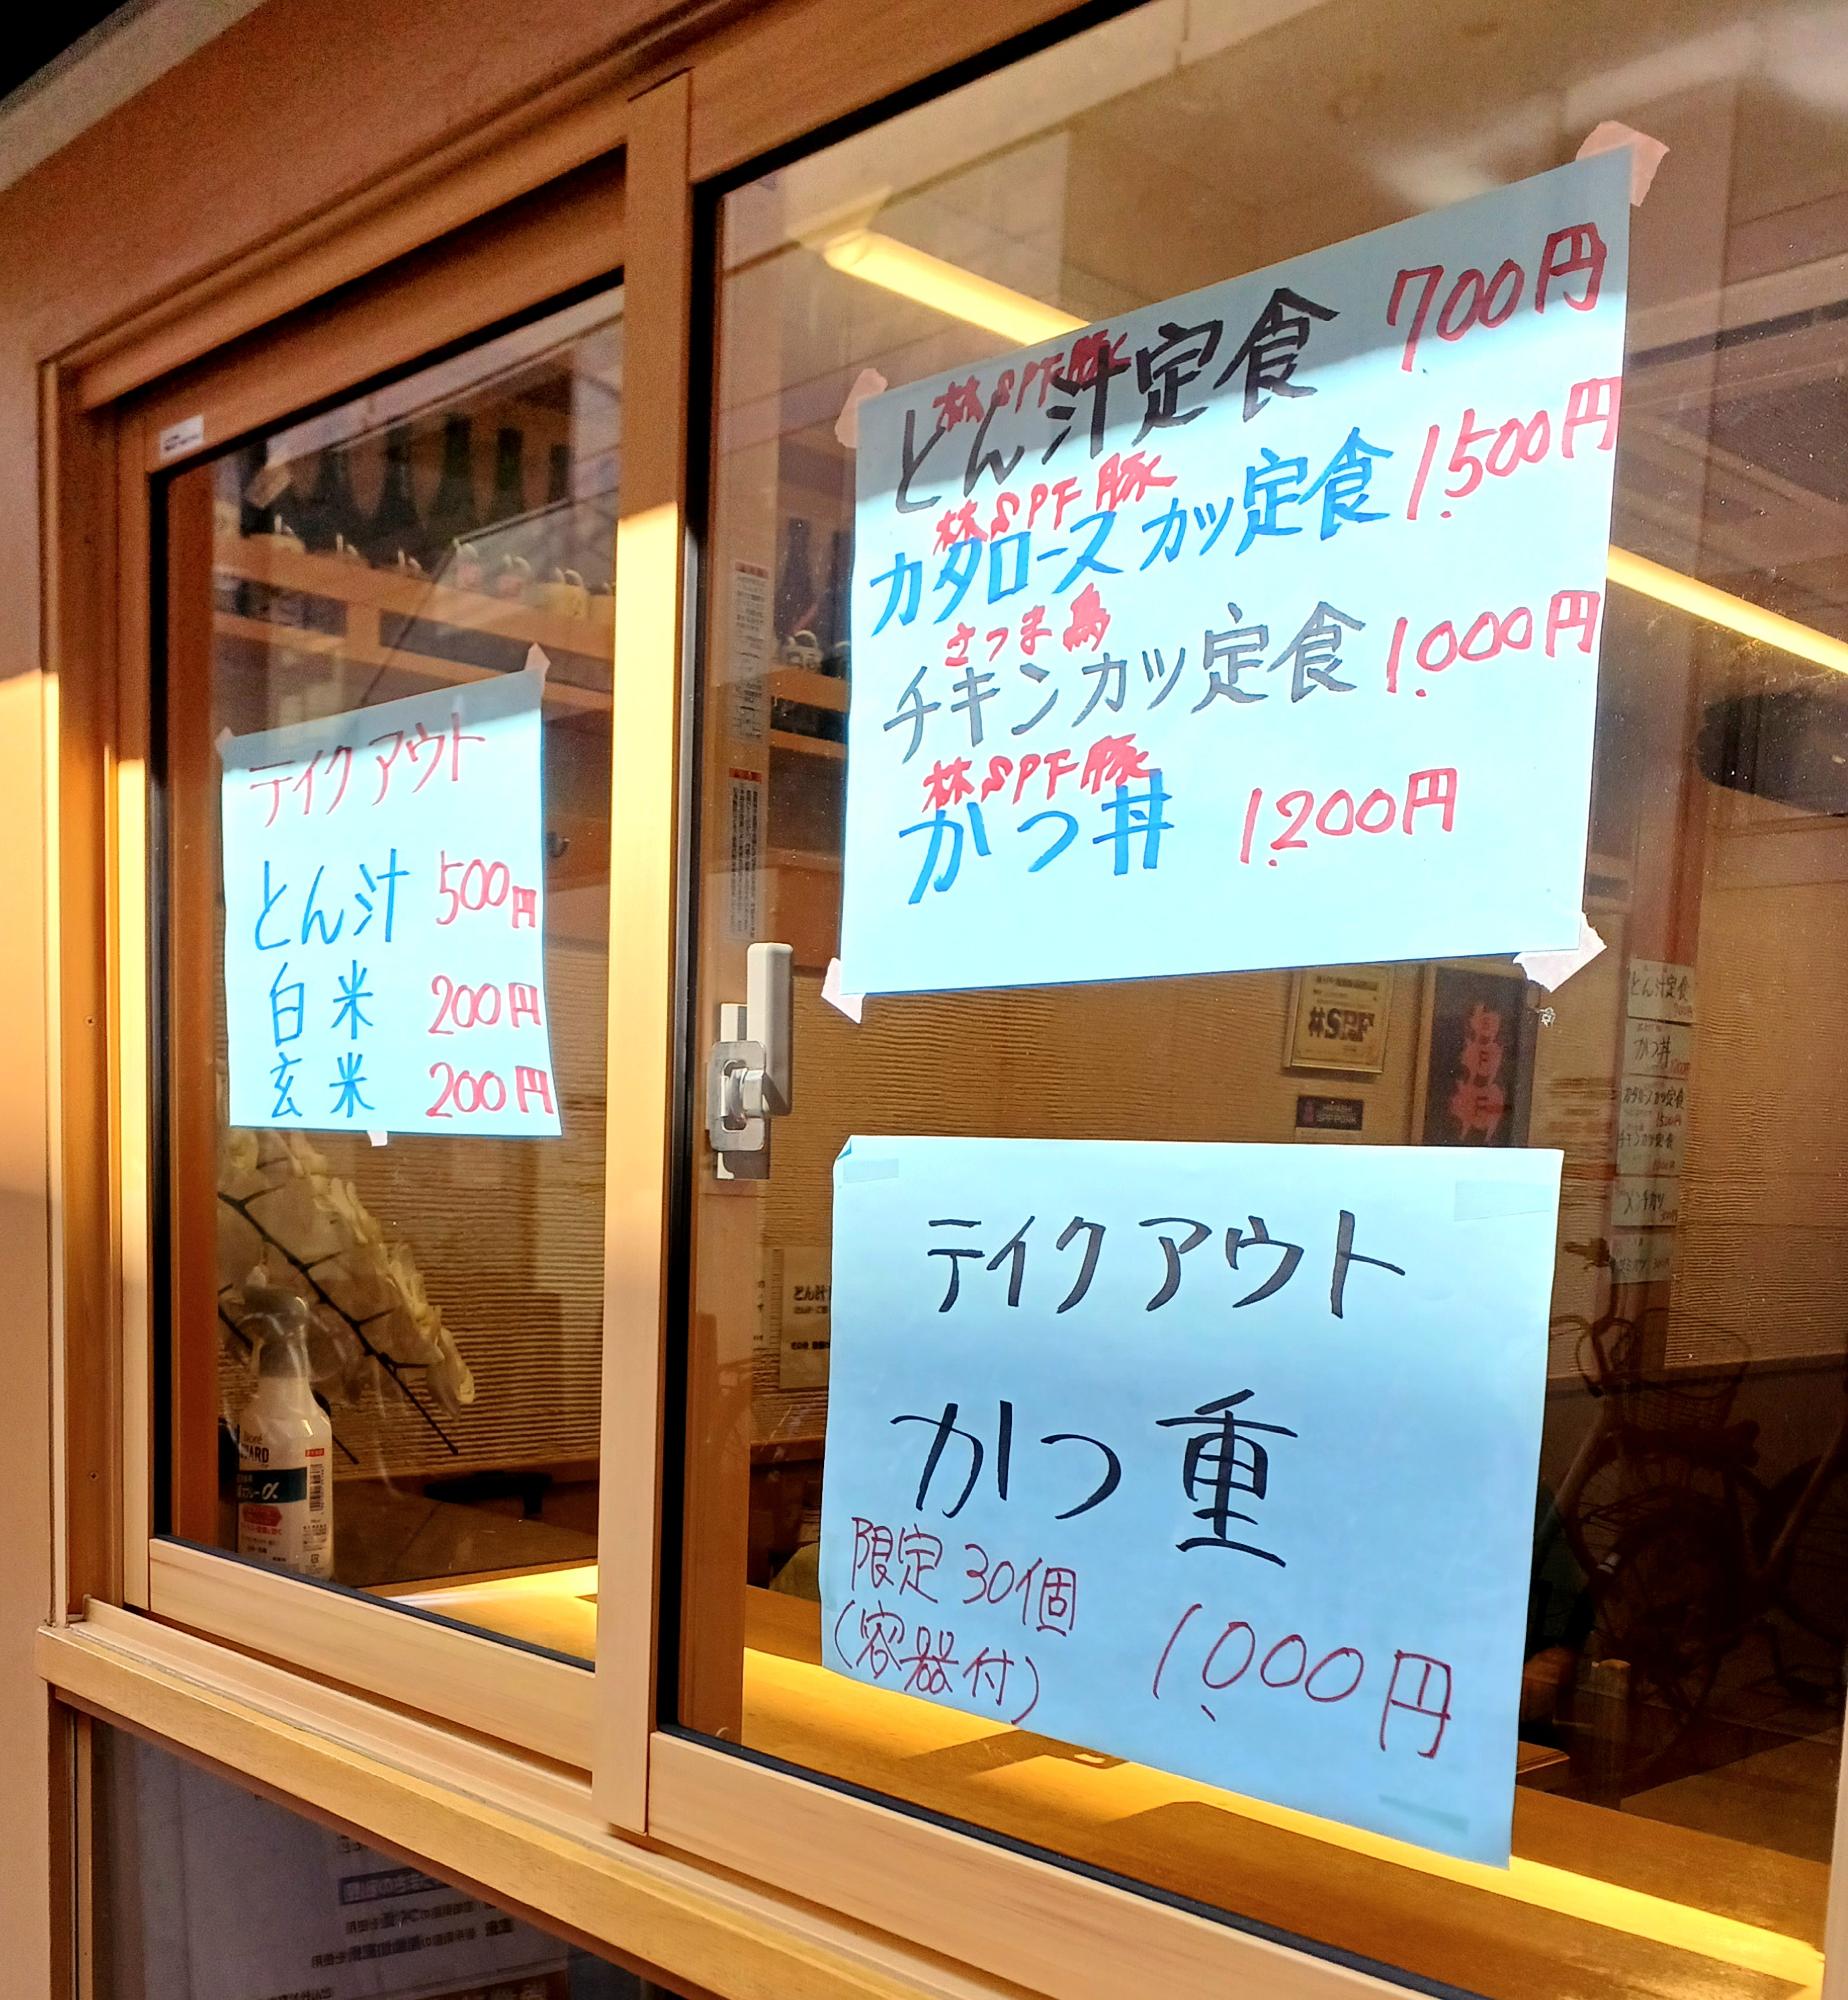 テイクアウト
とん汁 500円
白米 200円
玄米 200円
林SPF豚
とん汁定食 700円
林SPF豚
カタロースカツ定食 1,500円
さつま鳥
チキンカツ定食 1,000円
林SPF豚
かつ丼 1,200円
テイクアウト
かつ重
限定30個
(容器付) 1,000円
林SPF
とん汁定食
かつ丼
カタロースカツ定食
チキンカツ定食
メンチカツ